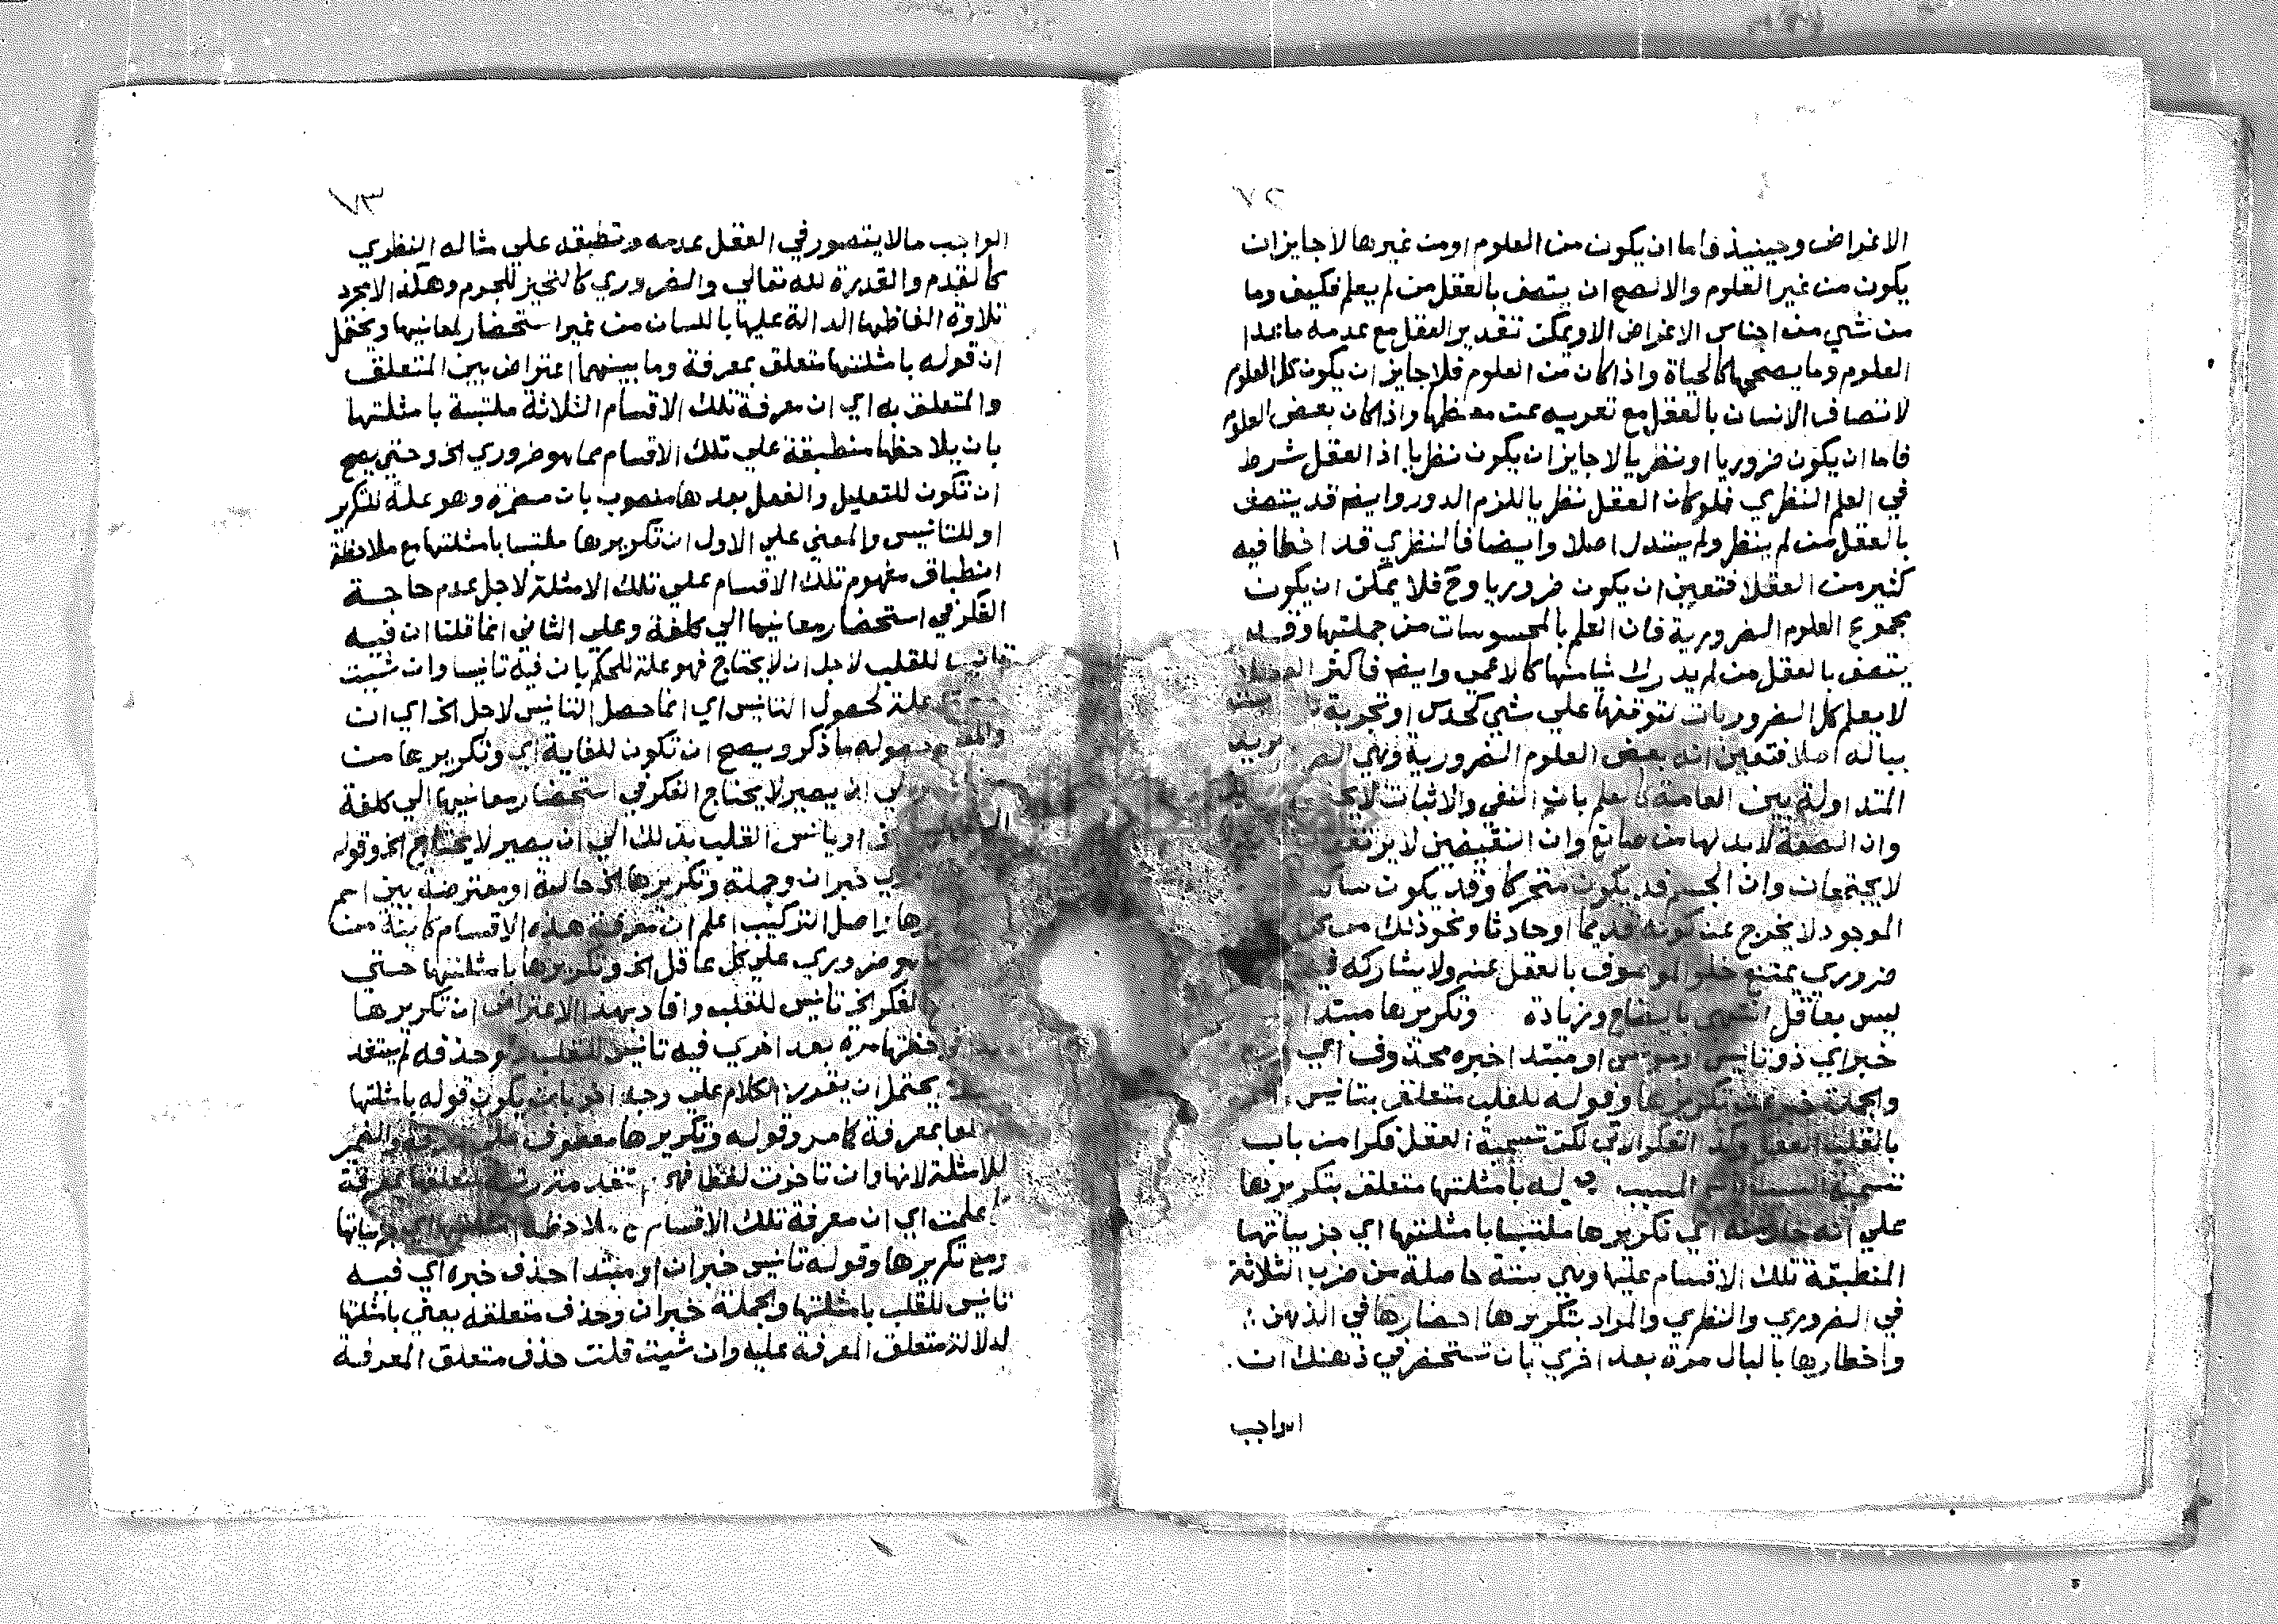 ٧٢
الاعراض وحينيذ فاما ان يكون من العلوم اومن غيرها لاجايزان
يكون من غير العلوم والالصح ان يتصف بالعقل من لم يعلم فكيف وما
من شي من اجناس الاعراض الاويمكن تقدير العقل مع عدمه ماعدا
العلوم وما يصحبها كالحياة واذاكان من العلوم فلاجايز ان يكون كل العلوم
لاتصاف الانسان بالعقل مع تعريه عن معظمها واذاكان بعض العلوم
فاما ان يكون ضروريا اونظريا لاجايزان يكون نظريا اذ العقل شرط
في العلم النظري فلوكان العقل نظريا للزم الدور وايضم قد يتصف
بالعقل من لم ينظر ولم يستدل اصلا وايضا فالنظري قد اخطا فيه
كثير من العقلا فتعين ان يكون ضروريا وح فلا يمكن ان يكون
مجموع العلوم الضرورية فان العلم بالمحسوسات من جملتها وقد
يتصف بالعقل من لم يدرك شيا منها كالاعمي وايضم فاكثر
لايعلم كل الضروريات لتوقفها علي شي كحدس اوتجربة
بباله اصلا فتعين انه بعض العلوم الضرورية وهي
المتداولة بين العامة كالعلم بان النفي والاثبات
وان الصنعة لابد لها من صانع وان النقيضين لايرتفعان
لايجتمعان وان الجسم قد يكون متحركا وقد يكون
الموجود لايخرج عن كونه قديما اوحادثا ونحوذلك من كل
ضروري يمتنع خلو الموصوف بالعقل عنه ولا يشاركه فيه
ليس بعاقل انتهي بايضاح وزيادة وتكريرها مبتدا
خبراي ذو تانيس اومونس اومبتدا خبره محذوف اي
والجملة خبر عن تكريرها وقوله للقلب متعلق بتانيس
بالقلب العقل وكذا الفكر الاتي لكن تسمية العقل فكرا من باب
تسمية السبب باسم المسبب له بامثلتها متعلق بتكريرها
علي انه حال منه اي تكريرها ملتبسا بامثلتها اي جزيياتها
المنطبقة تلك الاقسام عليها وهي ستة حاصلة من ضرب الثلاثة
في الضروري والنظري والمراد بتكريرها احضارها في الذهن
واخطارها بالبال مرة بعد اخري بان تستحضر في ذهنك ان
الواجب
٧٣
الواجب مالا يتصور في العقل عدمه وتطبقه علي مثاله النظري
كالقدم والقدرة لله تعالي والضروري كالتحيز للجرم وهكذا لامجرد
تلاوة الفاظها الدالة عليها باللسان من غير استحضار لمعانيها ويحتمل
ان قوله بامثلتها متعلق بمعرفة وما بينهما اعتراض بين المتعلق
والمتعلق به اي ان معرفة تلك الاقسام الثلاثة ملتبسة بامثلتها
بان يلاحظها منطبقة علي تلك الاقسام مما هو ضروري الخ وحتي يصح
ان تكون للتعليل والفعل بعدها منصوب بان مضمرة وهو علة للتكرير
او للتانيس والمعني علي الاول ان تكريرها ملتبسا بامثلتها مع ملاحظة
انطباق مفهوم تلك الاقسام علي تلك الامثلة لاجل عدم حاجة
الفكر في استحضار معانيها الي كلفة وعلي الثاني انما قلنا ان فيه
تانيسا للقلب لاجل ان لايحتاج فهو علة للحكم بان فيه تانيسا وان شيت
علة لحصول التانيس اي انما حصل التانيس لاجل الخ اي ان
حصوله ماذكر ويصح ان تكون للغاية اي وتكريرها من
الي ان يصير لايحتاج الفكر في استحضار معانيها الي كلفة
اويانس القلب بذلك الي ان يصير لايحتاج الخ وقوله
خبران وجملة وتكريرها الخ حالية اومعترضة بين اسم
ان وخبرها واصل التركيب اعلم ان معرفة هذه الاقسام كاينة من
ما هو ضروري علي كل عاقل الخ وتكريرها بامثلتها حتي
الفكر الخ تانيس للقلب وافاد بهذا الاعتراض ان تكريرها
وملاحظتها مرة بعد اخري فيه تانيس للقلب ولوحذفه لم يستفد
يحتمل ان يقدر الكلام علي وجه اخر بان يكون قوله بامثلتها
متعلقا بمعرفة كامر وقوله وتكريرها معطوف علي معرفة والضمير
للامثلة لانها وان تاخرت لفظا فهي متقدمة رتبة لتعلقها بمعرفة
كما علمت اي ان معرفة تلك الاقسام مع ملاحظة امثلتها اي جزيياتها
ومع تكريرها وقوله تانيس خبران اومبتدا حذف خبره اي فيه
تانيس للقلب بامثلتها والجملة خبران وحذف متعلقه يعني بامثلتها
لدلالة متعلق المعرفة عليه وان شيت قلت حذف متعلق المعرفة